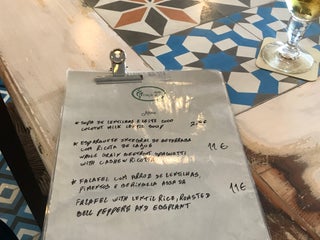 Menu
* SOPA DE LENTILHAS E LEITE COCO
COCONUT MILK LENTIL SOUP
* ESPARGUETE INTEGRAL DE BETERRABA
COM RICOTA DE CAJU
WHOLE GRAIN BEETROOT SPAGHETTI
WITH CASHEW RICOTTA
11 €
* FALAFEL COM ARROZ DE LENTILHAS,
PIMENTOS E BERINGELA ASSADA
11€
FALAFEL WITH LENTIL RICE, ROASTED
BELL PEPPERS AND EGGPLANT